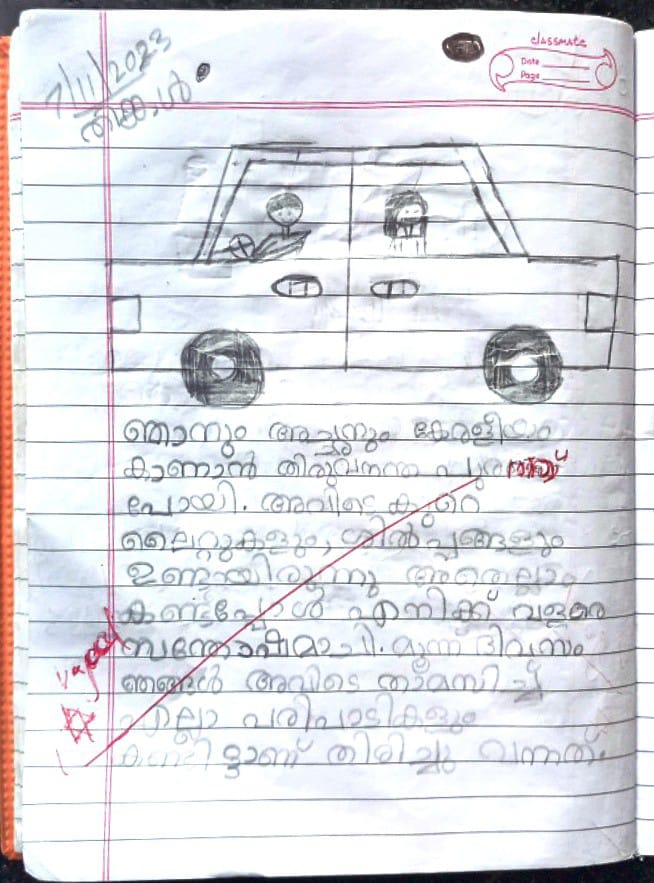 7/11/2023
തിങ്കൾ
classmate
Date
Page
ഞാനും അച്ഛനും കേരളീയം
കാണാൻ തിരുവനന്ത പുരത്ത്
പോയി. അവിടെ കുറെ
ലൈറ്റുകളും, ശിൽപ്പങ്ങളും
ഉണ്ടായിരുന്നു അതെല്ലാം
കണ്ടപ്പോൾ എനിക്ക് വളരെ
സന്തോഷമായി. മൂന്ന് ദിവസം
ഞങ്ങൾ അവിടെ താമസിച്ച്
എല്ലാ പരിപാടികളും
കണ്ടിട്ടാണ് തിരിച്ചു വന്നത്.
V. good